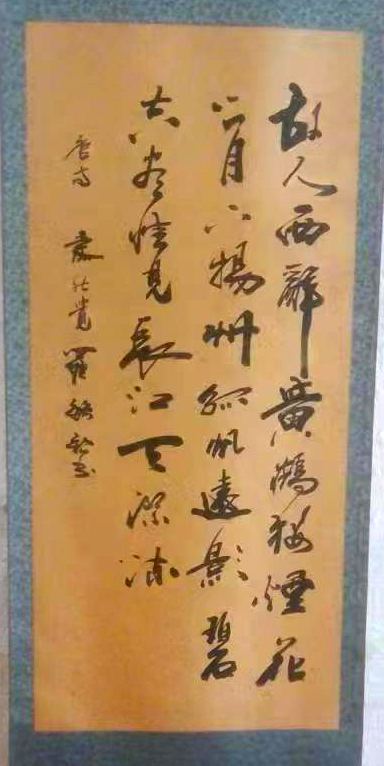 故人西辭黃鶴樓煙花
三月下揚州孤帆遠影碧
空盡惟見長江天際流
唐诗